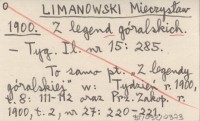 LIMANOWSKI Mieczysław
1900. Z legend góralskich.
— Tyg. Il. nr 15: 285.
To samo pt. „Z legendy
góralskiej" w: Tydzień r. 1900,
t. 8: 111-112 oraz Prz. Zakop. r.
1900, t. 2, nr 27: 220-221.